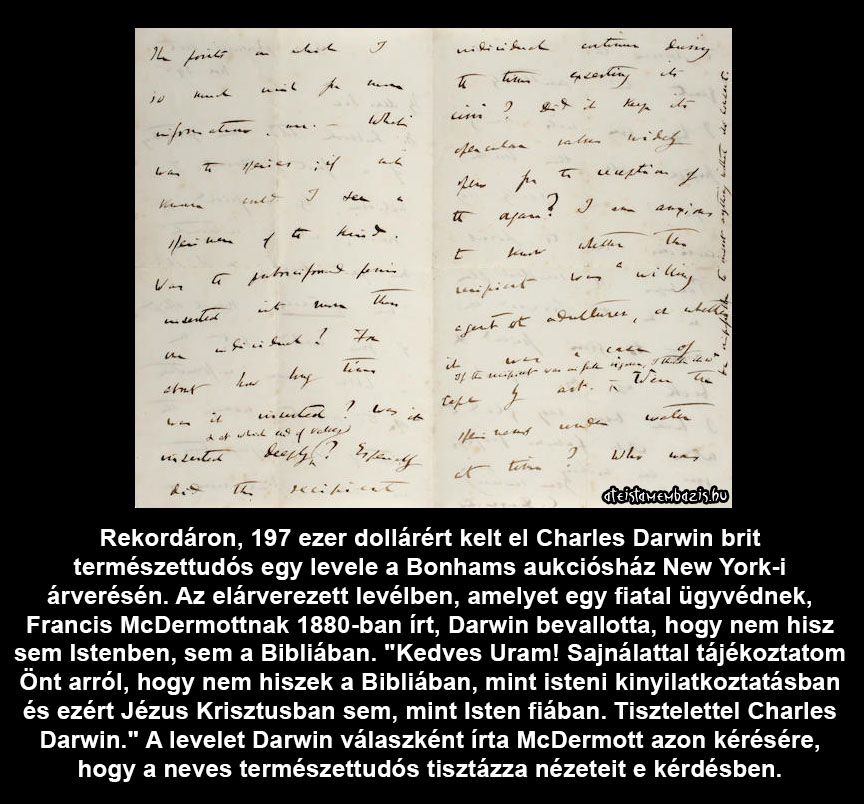 The points on which I
so much wish for more
information are — Which
was the species; if not
known could I see a
specimen of the kind.
Was the proboscisformed penis
inserted into more than
one individual? For
about how long time
was it inserted? Was it
inserted deeply? & at which end of valves? Especially
did the recipient
individual continue during
the time exserting its
cirri? Did it keep its
opercular valves widely
open for the reception of
the organ? I am anxious
to know whether the
recipient was a willing
agent or adulterer, or whether
it was a case of
If the recipient was in full vigour, I think
rape
Were the
specimens under water
at time? Who was
to insert anything without its consent.
ateistamembazis.hu
Rekordáron, 197 ezer dollárért kelt el Charles Darwin brit
természettudós egy levele a Bonhams aukciósház New York-i
árverésén. Az elárverezett levélben, amelyet egy fiatal ügyvédnek,
Francis McDermottnak 1880-ban írt, Darwin bevallotta, hogy nem hisz
sem Istenben, sem a Bibliában. "Kedves Uram! Sajnálattal tájékoztatom
Önt arról, hogy nem hiszek a Bibliában, mint isteni kinyilatkoztatásban
és ezért Jézus Krisztusban sem, mint Isten fiában. Tisztelettel Charles
Darwin." A levelet Darwin válaszként írta McDermott azon kérésére,
hogy a neves természettudós tisztázza nézeteit e kérdésben.